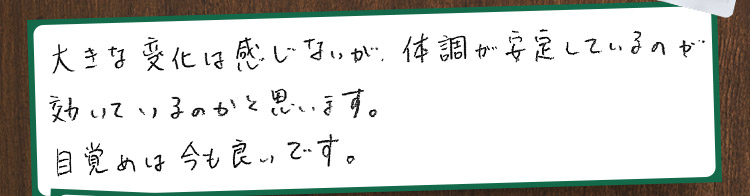 大きな変化は感じないが、体調が安定しているのが
効いているのかと思います。
目覚めは今も良いです。